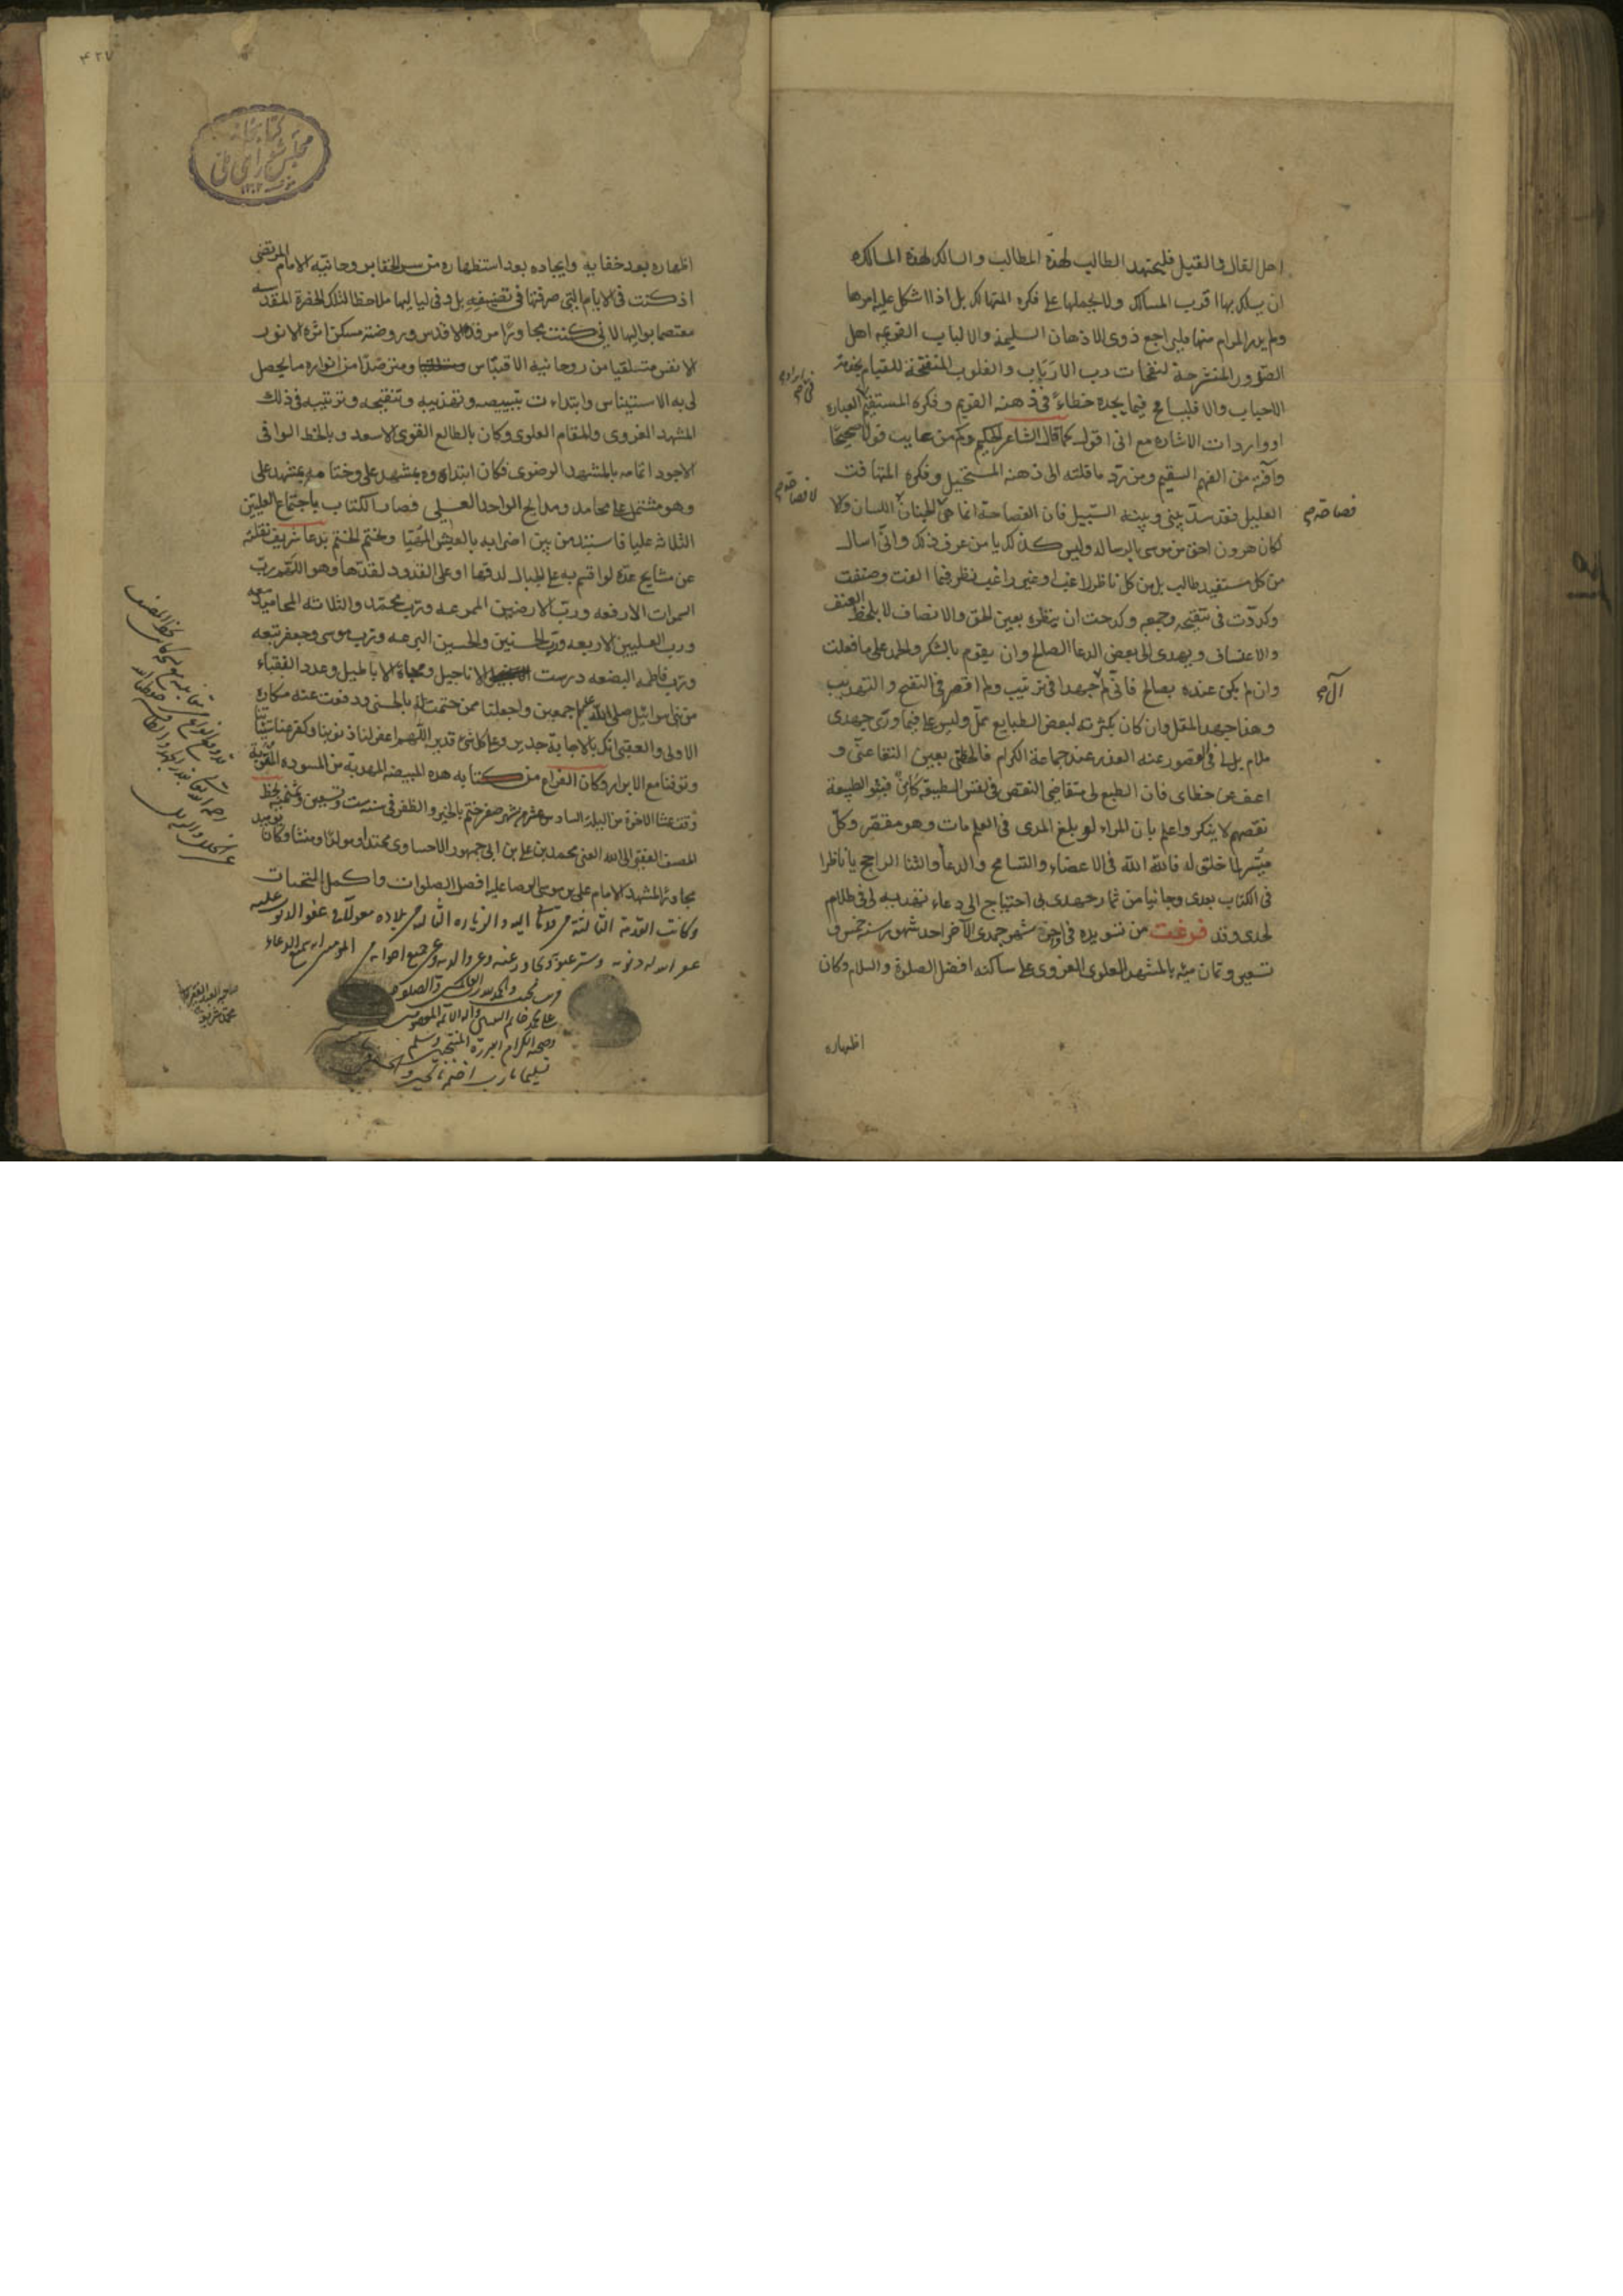 اهل القال والقيل فليجتهد الطالب لهذه المطالب والسالك لهذه المسالك
ان يسلك بها اقرب المسالك ولا يحملها على فكره المتهالك بل اذا اشكل عليه امرها
ولم يدر المرام منها فليراجع ذوى الاذهان السليمة والالباب القويمه اهل
الصدور المنشرحة لنفحات رب الارباب والقلوب المتفتحة للقيام بخدمة
الاحباب والا فليسامح فيما يجده خطاءً فى ذهنه القويم وفكره المستقيم العباره
او واردات الاشاره مع انى اقول كما قال الشاعر الحكيم وكم من عايب قولا صحيحا
وآفته من الفهم السقيم ومن ردّ ما قلته الى ذهنه المستحيل وفكره المتهافت
العليل فقد سدّ بينى وبينه السبيل فان الفصاحة انما هى الجنان اللسان ولا
فصاحه
لا فصاحه
لكان هرون احق من موسى بالرساله وليس كذلك يا من عرف ذلك وانى اسال
من كل مستفيد طالب بل من كل ناظر راغب او غير راغب نظر فيما الفت وصنفت
وكددت فى تنقيحه وجمعه وكدحت ان ينظره بعين الحق والانصاف لا بلحظ العنف
والاعتساف ويهدى الى بعض الدعا الصالح وان يقوم بالشكر والحمد على ما فعلت
وان لم يكن عنده بصالح فانى لم آل جهدا فى ترتيب ولم اقصر فى التنقيح والتهذيب
وهذا جهد المقل وان كان بكثرته لبعض الطبايع مملّ وليس على فيما ورى جهدى
ملام بل لى فى القصور عنه العذر عند جماعة الكرام فالحظنى بعين التقاعتى و
اعف عن خطاى فان الطبع لى متقاضى النقص فى نفس الطبيعة كامن فبنو الطبيعة
نقصهم لا ينكر واعلم بان المراء لو بلغ المدى فى العلم مات وهو مقصر وكلّ
ميسر لما خلق له فالله الله فى الاغضاء والتسامح والدعاء والثنا الراجح يا ناظرا
فى الكتاب بعدى وجانيا من ثمار جهدى بى احتياج الى دعاء تهديه لى فى ظلام
لحدى وقد فرغت من تسويده فى اخر شهر جمدى الآخر احد شهور سنه خمس و
تسعين وثمان ميه بالمشهد العلوى الغروى على ساكنه افضل الصلوة والسلام وكان
اظهاره
۴۲۷
كتابخانه
مجلس شوراى ملى
اظهاره بعد خفايه وايجاده بعد استظهاره من سر الخفا بروحانيّة الامام المرتضى
اذ كنت فى الايام التى صرفتها فى تصنيفه بل وفى لياليها ملاحظا لتلك الحضرة المقدسه
معتصما بواليها لانى كنت مجاورا مرقده الاقدس وروضته مسكن اثره الانور
الانفس متلقيا من روحانية الاقتباس ومترصّدا من انواره ما يحصل
لى به الاستيناس وابتداءت بتبييضه وتهذيبه وتنقيحه وترتيبه فى ذلك
المشهد الغروى والمقام العلوى وكان بالطالع القوى الاسعد وبالحظ الوافى
الاجود اتمامه بالمشهد الرضوى فكان ابتداه بمشهد على وختامه بمشهد على
وهو مشتمل على محامد ومدايح الواحد العلى فصار الكتاب باجتماع العليين
الثلاثه عليا فاستند من بين اضرابه بالعيش المهيا ولنختم الختم بدعا شريف نقلته
عن مشايخ عدّة لو اقسم به على الجبال لدقها او على القدود لقدّها وهو اللهم ربّ
السموات الارفعه وربّ الارضين الممرعه وربّ محمّد والثلاثه المحاميد معه
ورب العليين الاربعه وربّ الحسنين والحسين البرعه ورب موسى وجعفر تبعه
وربّ فاطمه البضعه درست الاناجيل ومحاة الاباطيل وعدد النقباء
من بنى اسرائيل صلّ عليهم اجمعين واجعلنا ممن ختمت له بالحسنى ودفعت عنه مكاره
الاولى والعقبى انك بالاجابة جدير وعلى كل شئ قدير اللّهم اغفر لنا ذنوبنا وكفر عنا سيئاتنا
وتوفنا مع الابرار وكان الفراغ من كتابه هذه المبيضه المهذبة من المسوده
وقت عشا الاخرة من الليلة السادس عشر من شهر صفر ختم بالخير والظفر فى سنه ست وتسعين وثمنميه بخط
المصنف الفقير الى الله الغنى محمد بن على بن ابى جمهور الاحساوى محتدا ومولدا ومنشا وكان يوميذ
مجاورا لمشهد الامام على بن موسى الرضا عليه افضل الصلوات واكمل التحيات
وكانت القدمة الثالثة من قدماتى اليه والزياره الثالثه من بلاده معولا فى عفو الله
غفر الله له ذنوبه وستر عيوبه وتجاوز عنه وعن والديه وعن جميع اخوانه من المومنين انه سميع الدعاء
قريب مجيب والحمد لله رب العالمين والصلوة
على محمد خاتم النبيين وآله الائمة المعصومين
وصحبه الكرام البررة المنتجبين وسلم
تسليما يا رب اختم بالخير